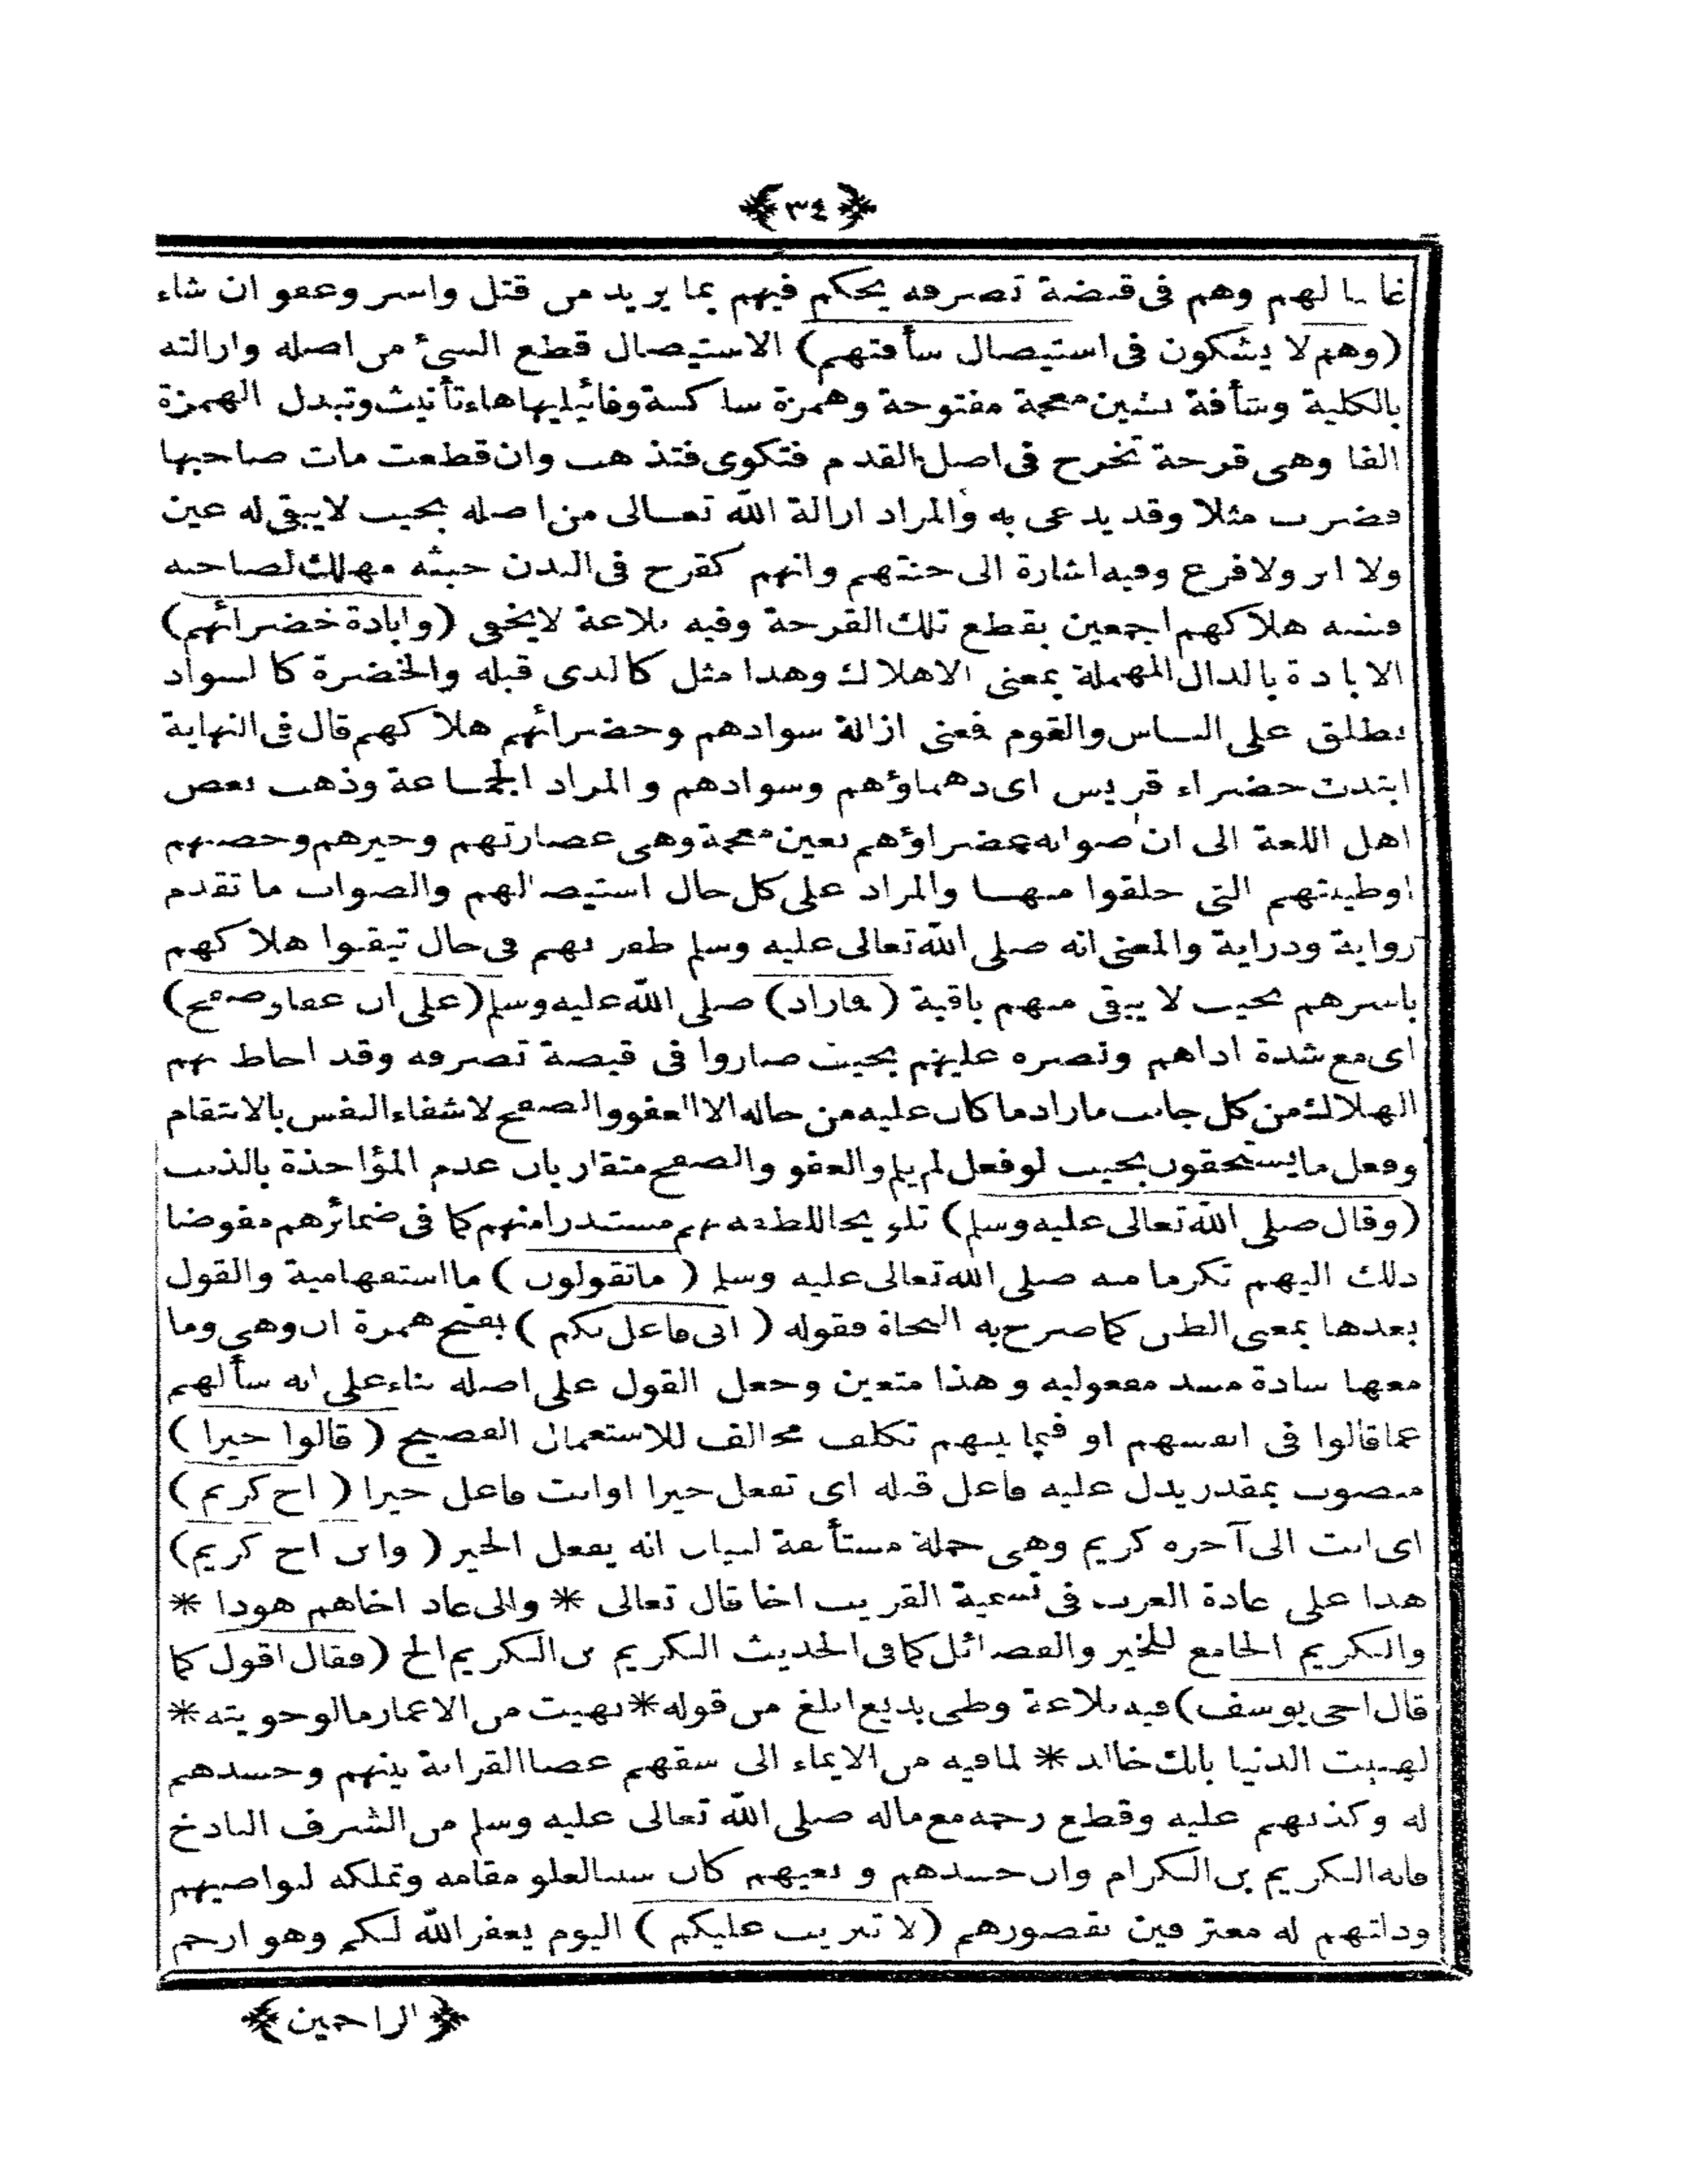 ﴿٣٤﴾
غالبا لهم وهم فى قبضة تصرفه يحكم فيهم بما يريد من قتل واسر وعفو ان شاء
(وهم لا يشكون فى استيصال سأفتهم) الاستيصال قطع الشئ من اصله وازالته
بالكلية وشأفة بشين معجمة مفتوحة وهمزة ساكنة وفاء يليها هاء تأنيث وتبدل الهمزة
الفا وهى قرحة تخرج فى اصل القدم فتكوى فتذهب وان قطعت مات صاحبها
فضرب مثلا وقد يدعى به والمراد ازالة الله تعالى من اصله بحيث لا يبقى له عين
ولا اثر ولا فرع وفيه اشارة الى خبثهم وانهم كقرح فى البدن خبثه مهلك لصاحبه
فشبه هلاكهم اجمعين بقطع تلك القرحة وفيه بلاغة لا يخفى (وابادة خضرائهم)
الابادة بالدال المهملة بمعنى الاهلاك وهذا مثل كالذى قبله والخضرة كالسواد
يطلق على الناس والقوم فمعنى ازالة سوادهم وخضرائهم هلاكهم قال فى النهاية
ابيدت خضراء قريش اى دهماؤهم وسوادهم والمراد الجماعة وذهب بعض
اهل اللغة الى ان صوابه غضراؤهم بغين معجمة وهى غضارتهم وخيرهم وخصبهم
اوطينتهم التى خلقوا منها والمراد على كل حال استيصالهم والصواب ما تقدم
رواية ودراية والمعنى انه صلى الله تعالى عليه وسلم ظفر بهم فى حال تيقنوا هلاكهم
باسرهم بحيث لا يبقى منهم باقية (فازاد) صلى الله عليه وسلم (على ان عفا وصفح)
اى مع شدة اذاهم ونصره عليهم بحيث صاروا فى قبضة تصرفه وقد احاط بهم
الهلاك من كل جانب مازاد ما كان عليه من حاله الا العفو والصفح لا شفاء النفس بالانتقام
وفعل ما يستحقون بحيث لو فعل لم يلم والعفو والصفح متقاربان عدم المؤاخذة بالذنب
(وقال صلى الله تعالى عليه وسلم) تلويحا للطفه بهم مستدرا منهم كما فى ضمائرهم مفوضا
ذلك اليهم تكرما منه صلى الله تعالى عليه وسلم (ما تقولون) ما استفهامية والقول
بعدها بمعنى الظن كما صرح به النحاة فقوله (انى فاعل بكم) بفتح همزة ان وهى وما
معها سادة مسد مفعوليه وهذا متعين وجعل القول على اصله بناء على انه سألهم
عما قالوا فى انفسهم او فيما بينهم تكلف مخالف للاستعمال الفصيح (قالوا خيرا)
منصوب بمقدر يدل عليه فاعل قبله اى تفعل خيرا او انت فاعل خيرا (اخ كريم)
اى انت الى آخره كريم وهى جملة مستأنفة لبيان انه يفعل الخير (وابن اخ كريم)
هذا على عادة العرب فى تسمية القريب اخا قال تعالى * والى عاد اخاهم هودا *
والكريم الجامع للخير والفضائل كما فى الحديث الكريم بن الكريم الخ (فقال اقول كما
قال اخى يوسف) فيه بلاغة وطى بديع ابلغ من قوله * نهبت من الاعمار ما لو حويته *
لهنيت الدنيا بانك خالد * لما فيه من الايماء الى سقهم عصا القرابة بينهم وحسدهم
له وكذبهم عليه وقطع رحمه مع ماله صلى الله تعالى عليه وسلم من الشرف الباذخ
فانه الكريم بن الكرام وان حسدهم وبغيهم كان سببا لعلو مقامه وتملكه لنواصيهم
وذلتهم له معترفين بقصورهم (لا تثريب عليكم) اليوم يغفر الله لكم وهو ارحم
﴿الراحمين﴾